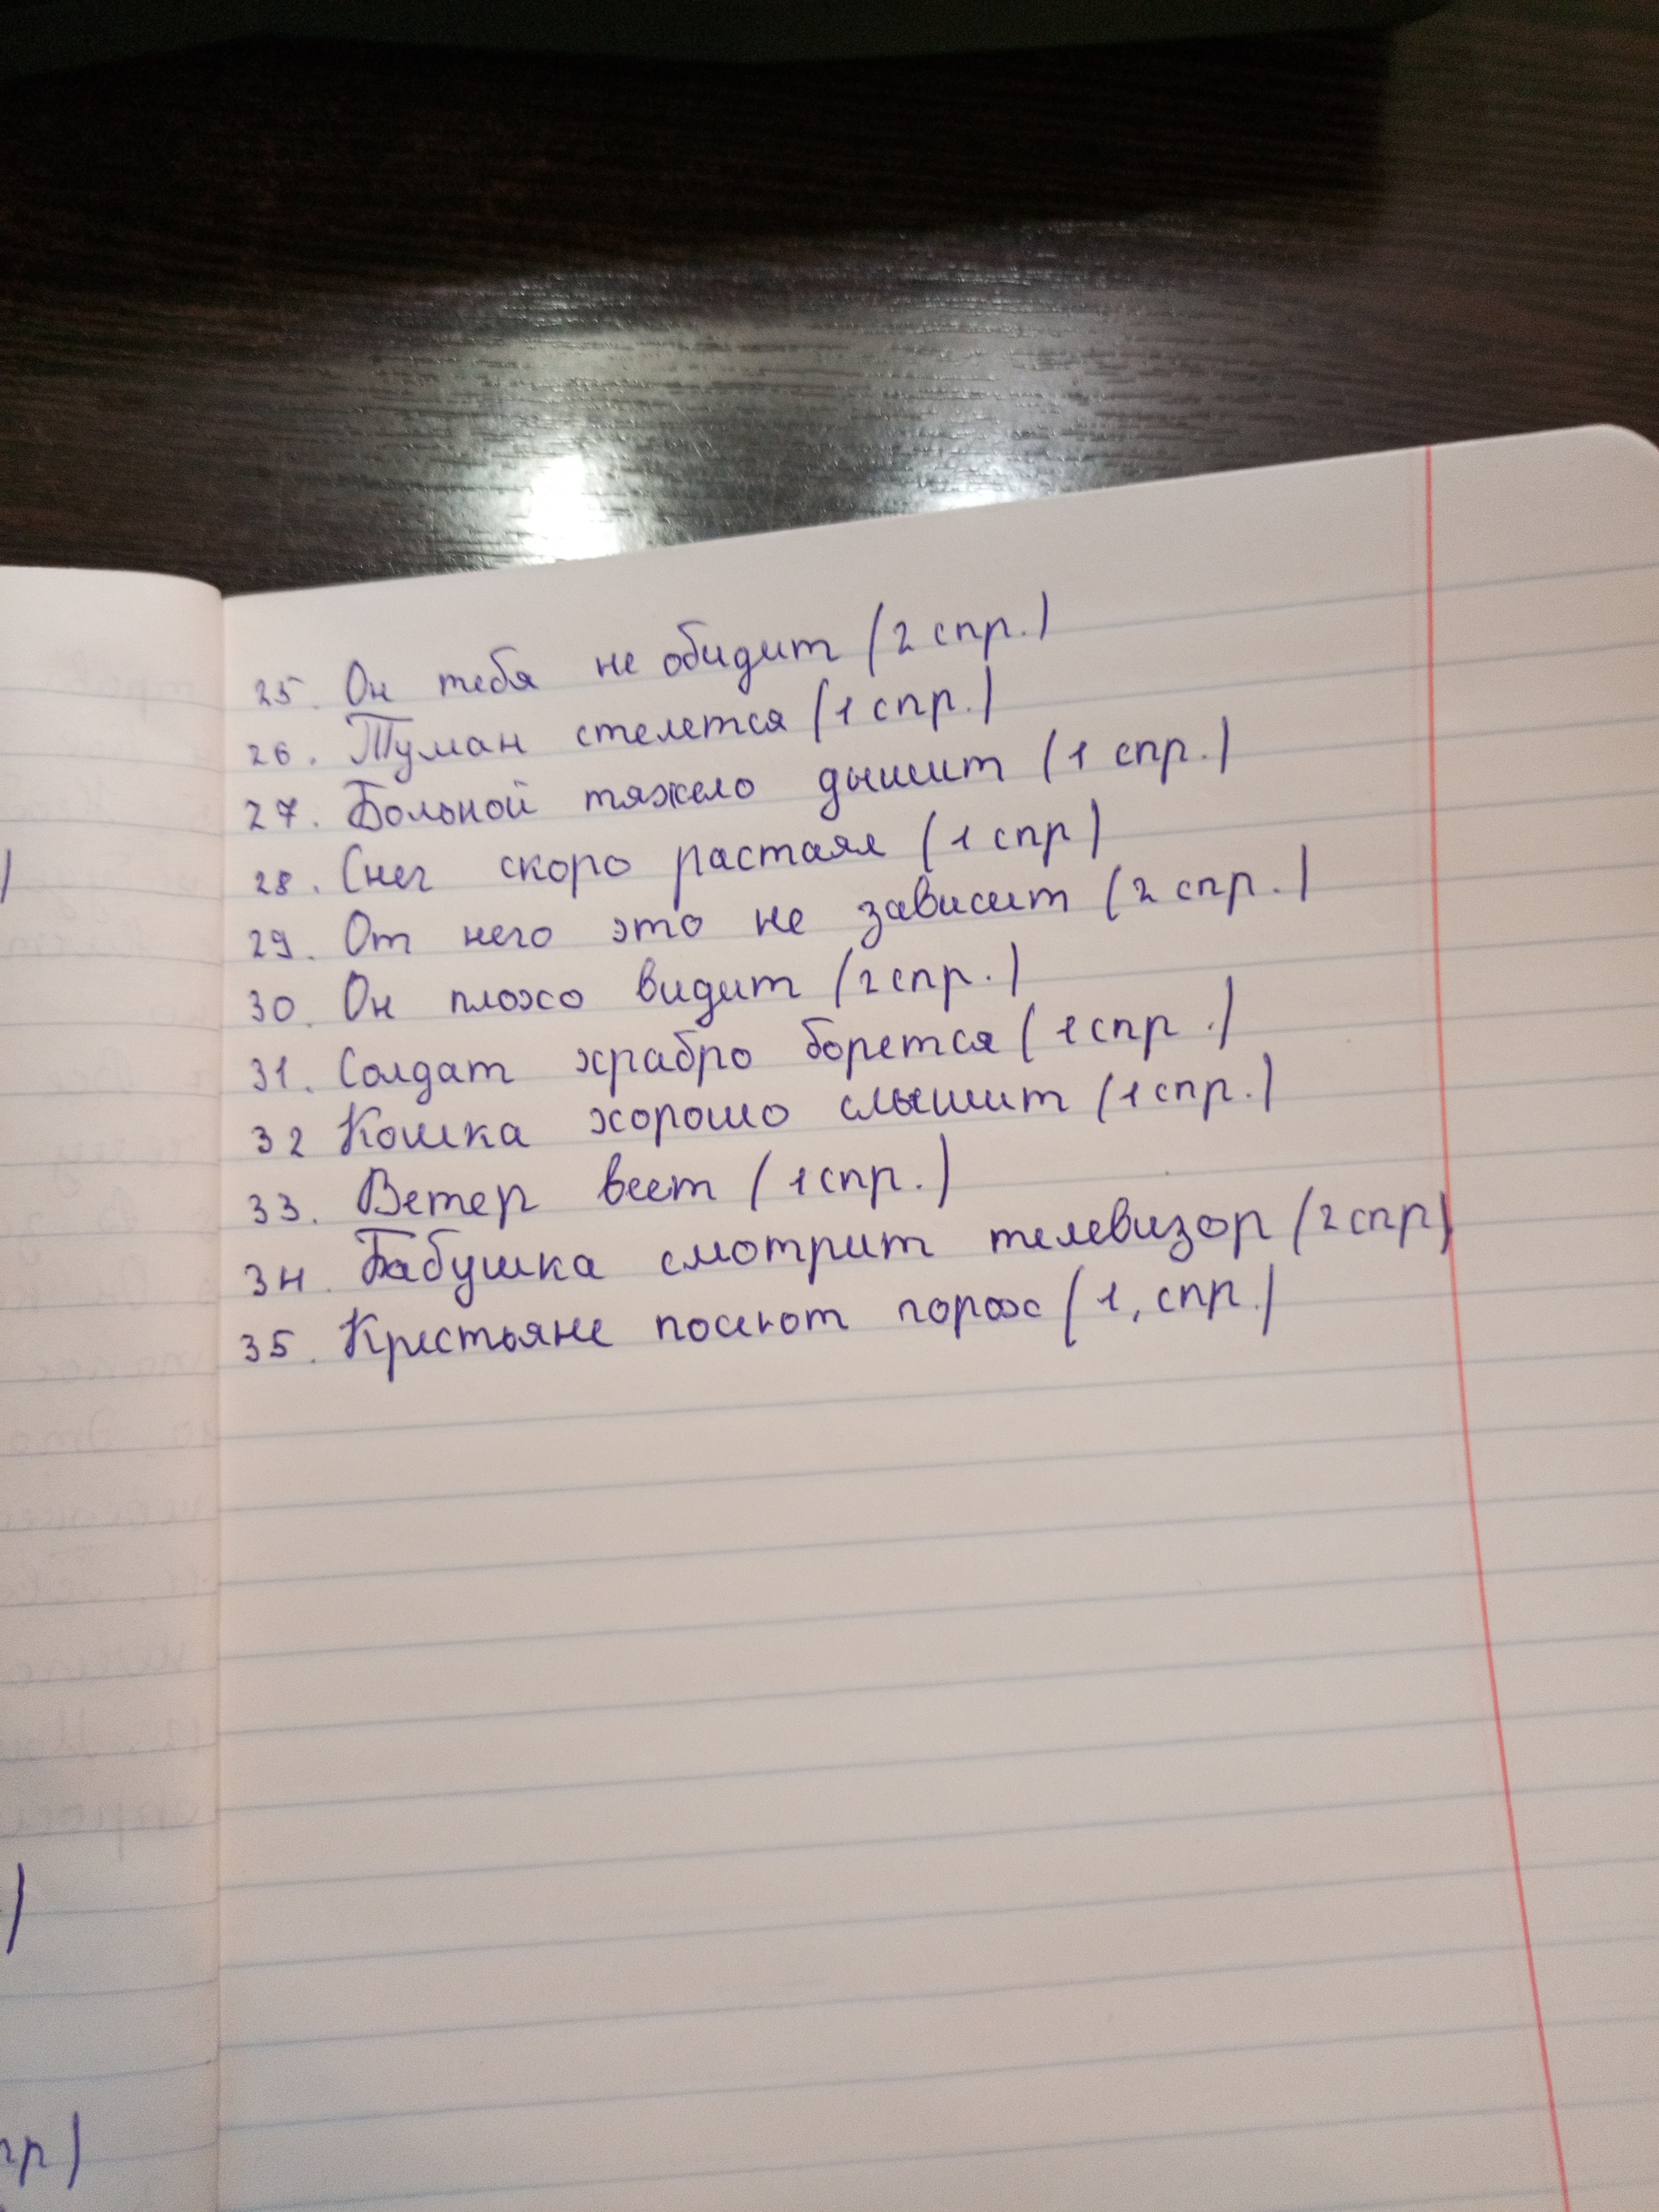 25. Он тебя не обидит (2 спр.)
26. Туман стелется (1 спр.)
27. Больной тяжело дышит (1 спр.)
28. Снег скоро растаял (1 спр)
29. От него это не зависит (2 спр.)
30. Он плохо видит (2 спр.)
31. Солдат храбро борется (1 спр.)
32 Кошка хорошо слышит (1 спр.)
33. Ветер веет (1 спр.)
34. Бабушка смотрит телевизор (2 спр)
35. Крестьяне посеют горох (1, спр.)
пр)